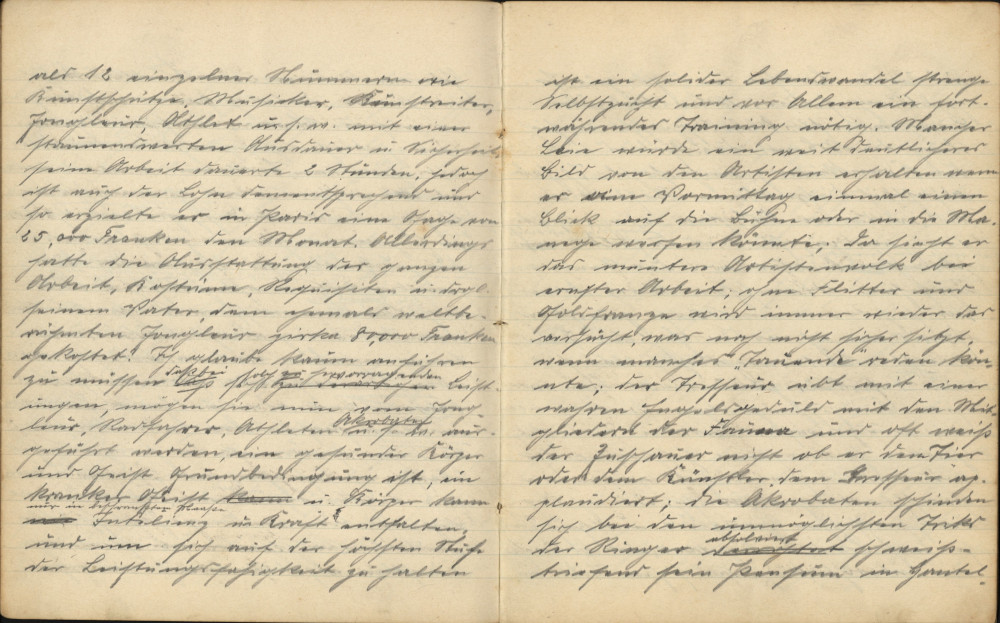 als 12 einzelner Nummern wie
Kunstschütze, Musicker, Kunstreiter,
Jongleur, Athlet u. s. w. mit einer
staunenswerten Ausdauer u Sicherheit
seine Arbeit dauerte 2 Stunden, jedoch
ist auch der Lohn dementsprechend und
so erzielte er in Paris eine Gage von
25,000 Franken den Monat. Allerdings
hatte die Ausstattung der ganzen
Arbeit, Kostüme, Requisiten u. drgl.
seinem Vater, dem ehemals weltbe-
rühmten Jongleur zirka 80,000 Franken
gekostet. Ich glaube kaum anführen
zu müssen daß bei solch hervorragenden Leist-
ungen, mögen sie nun vom Jong-
leur, Radfahrer, Athleten Akrobaten u. s. w. aus-
geführt werden, ein gesunder Körper
und Geist Grundbedingung ist, im
kranker Geist u. Körper kann
nur in beschränktem Maase
Intelienz u Kraft entfalten,
und um sich auf der höchsten Stufe
der Leistungsfähigkeit zu halten
ist ein solider Lebenswandel strenge
Selbstzucht und vor Allem ein fort-
währendes Training nötig. Mancher
Laie würde ein weit deutlicheres
Bild von den Artisten erhalten wenn
er am Vormittag einmal einen
Blick auf die Bühne oder in die Ma-
nege werfen könnte, da sieht er
das muntere Artistenvolk bei
ernster Arbeit; ohne Flitter und
Goldfranze wird immer wieder das
versucht, was noch nicht sicher sitzt,
wenn manches "Tausende" reden kön-
nte; der Dresseur übt mit einer
wahren Engelsgeduld mit den Mit-
gliedern der Fauna und oft weiß
der Zuschauer nicht ob er dem Tier
oder dem Künstler, dem Dresseur ap-
plaudiert; die Akrobaten schinden
sich bei den unmöglichsten Triks
der Ringer absolviert schweiß-
triefend sein Pensum in Hantel-